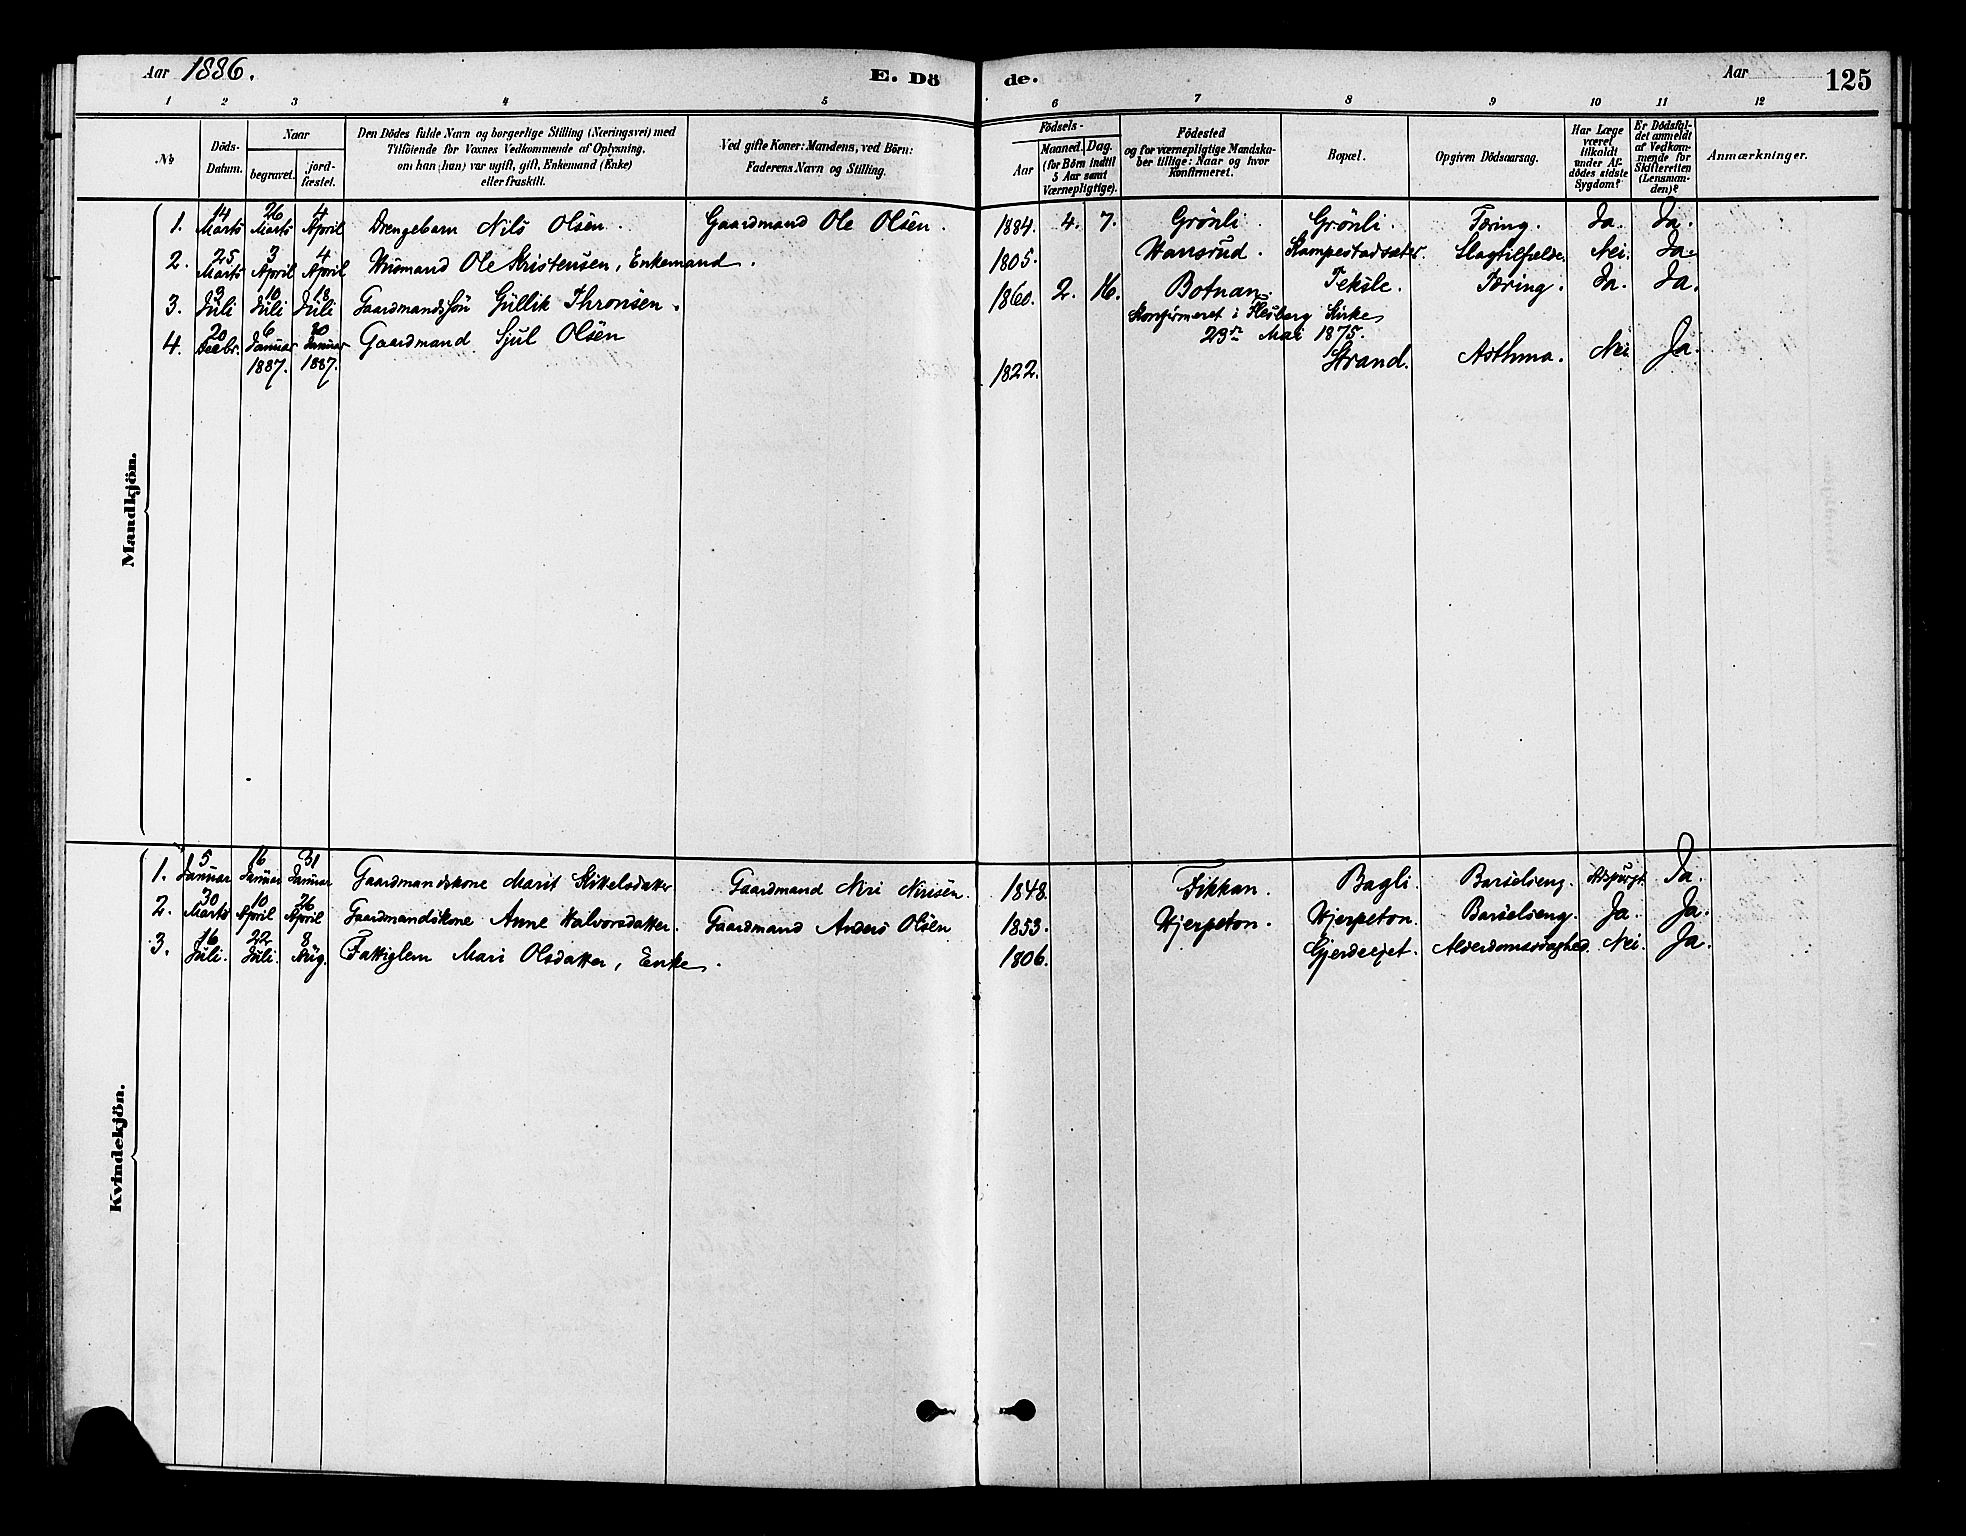 Aar 1886. E. Dö de. Aar 125
1 2 3 4 5 6 7 8 9 10 11 12
No. Döds-Datum. Naar begravet. jord-fæstet. Den Dödes fulde Navn og borgerlige Stilling (Næringsvei) med Tilföiende for Voxnes Vedkommende af Oplysning, om han (hun) var ugift, gift, Enkemand (Enke) eller fraskilt. Ved gifte Koner: Mandens, ved Börn: Faderens Navn og Stilling. Födsels- Aar Maaned. Dag. (for Börn indtil 5 Aar samt Værnepligtige). Födested og for værnepligtige Mandska-ber tillige: Naar og hvor Konfirmeret. Bopæl. Opgiven Dödsaarsag. Har Læge været tilkaldt under Af-dödes sidste Sygdom? Er Dödsfal-det anmeldt af Vedkom-mende for Skifteretten (Lensman-den)? Anmærkninger.
Mandkjön.
1. 14 Marts 26 Marts 4 April Drengebarn Nils Olsen. Gaardmand Ole Olsen. 1884. 4. 7. Grönli. Grönli. Tæring. Ja. Ja.
2. 25 Marts 3 April 4 April Husmand Ole Kristensen, Enkemand. 1805. Hansrud. Slagtilfælde. Nei. Ja.
3. Juli 10 Juli 18 Juli Gaardmandssön Gullik Thronsen. 1860. 2. 16. Botnan. Teksle. Tæring. Ja. Ja.
Konfirmeret i Flesberg Kirke
23n Mai 1875.
4. 20 Decbr. 6 Januar 1887. Januar 1887. Gaardmand Sjul Olsen 1822. Strand. Asthma. Nei Ja.
Kvindekjön.
1. 5 Januar 16 Januar 31 Januar Gaardmandskone Marit Gaardmand Niri Nirisen. 1848. Fikkan. Bagli. Barselseng. Ja.
2. 30 Marts 10 April 26 April Gaardmandskone Anne Halvorsdatter. Gaardmand Anders Olsen 1853. Hjerpeton. Hjerpeton. Barselseng. Ja. Ja.
3. 16 Juli. 22 Juli. 8 Aug. Fattiglem Mari Olsdatter, Enke. 1806. Alderdomssvaghed. Nei. Ja.